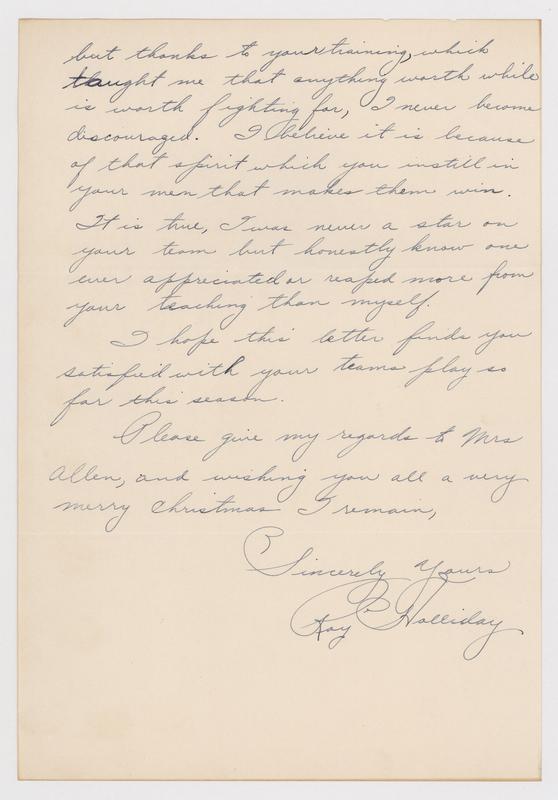 but thanks to your training, which
taught me that anything worth while
is worth fighting for, I never become
discouraged. I believe it is because
of that spirit which you instill in
your men that makes them win.
It is true, I was never a star on
your team but honestly know one
ever appreciated or reaped more from
your teaching than myself.
I hope this letter finds you
satisfied with your teams play so
far this season.
Please give my regards to Mrs
Allen, and wishing you all a very
merry Christmas I remain,
Sincerely Yours
Ray Holliday